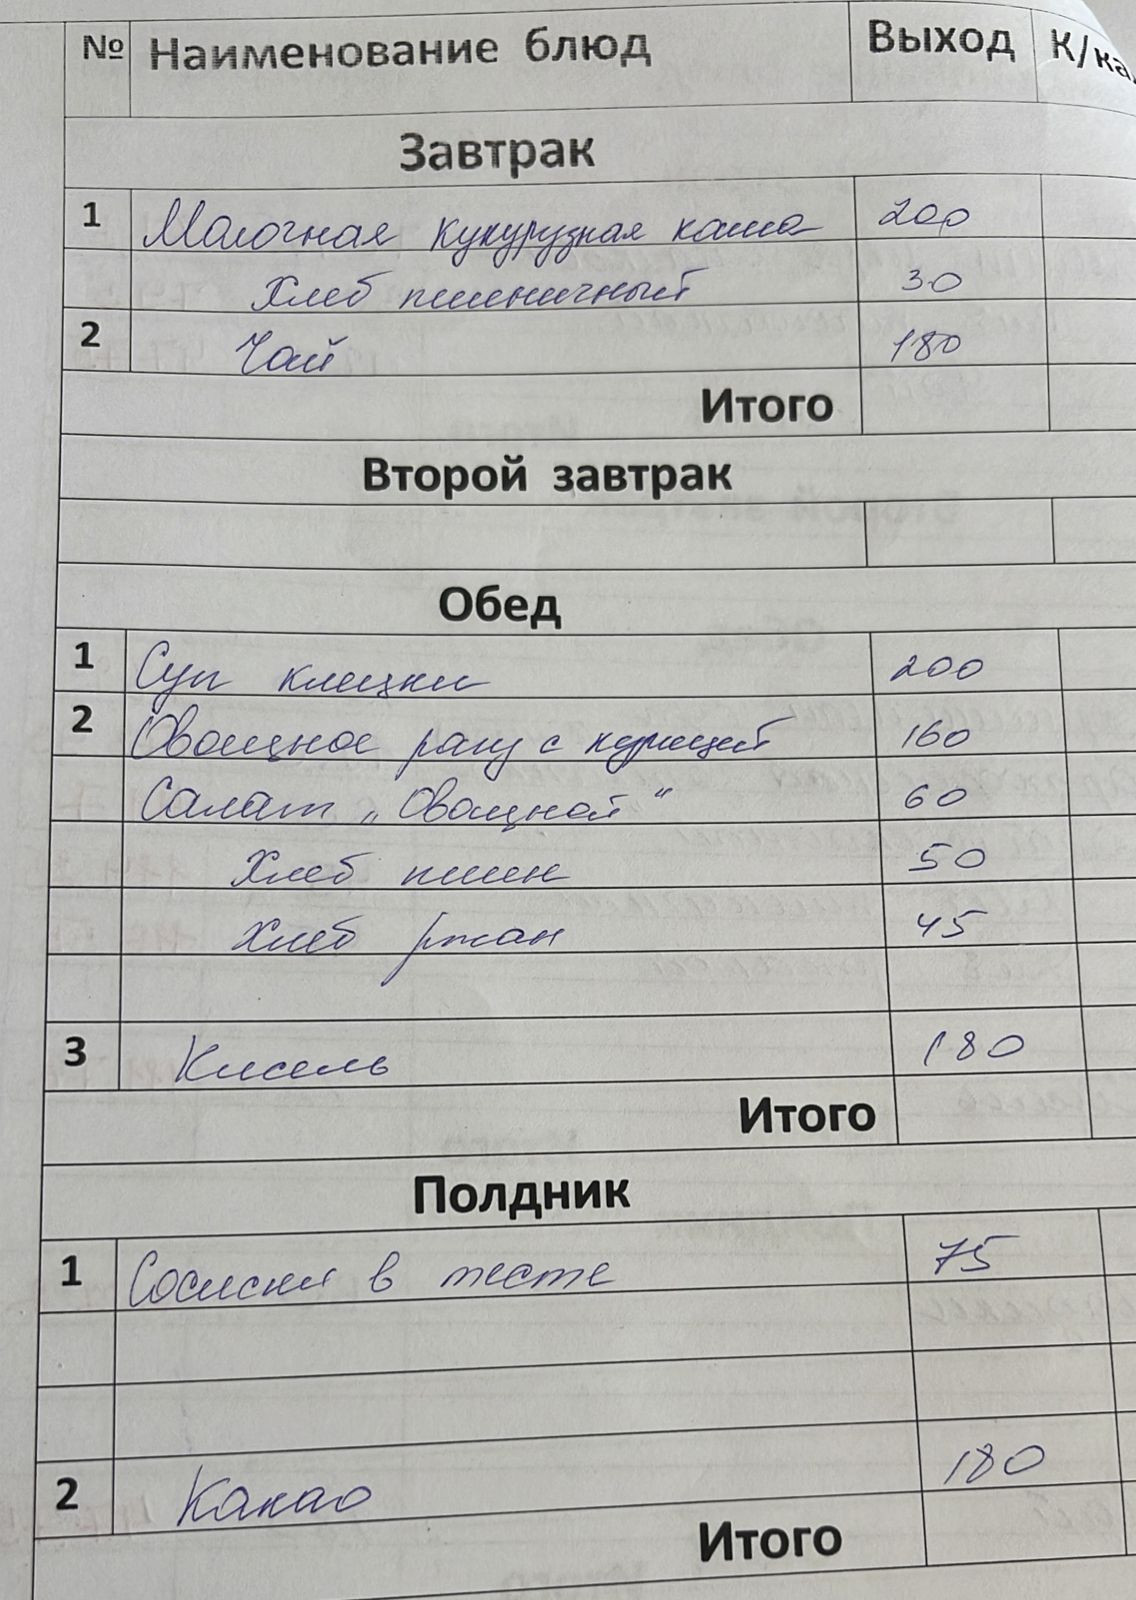 № Наименование блюд Выход К/ка
Завтрак
1 Молочная кукурузная каша 200
Хлеб пшеничный 30
2 Чай 180
Итого
Второй завтрак
Обед
1 Суп клецки 200
2 Овощное рагу с курицей 160
Салат „Овощной" 60
Хлеб пшен 50
Хлеб ржан 45
3 Кисель 180
Итого
Полдник
1 Сосиски в тесте 75
2 Какао 180
Итого